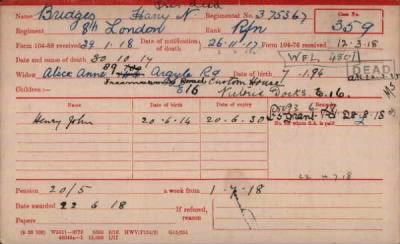 Pres. Dead
Name Bridges Harry N. Regimental No. 375367 Case No.
Regiment 8th London Rank Rfn 359
Form 104-88 received 29.1.18 Date of notification of death 26.11.17 Form 104-76 received 12.3.18
Date and cause of death 30.10.17 WFL 4801
Widow Alice Anne 89 Argyle Rd Date of birth 7.1.94 DEAD
Freemasons Road Custom House
Children:— E16 Victoria Docks. E.16.
Name Date of birth Date of expiry
Henry John 20.6.14 20.6.30 28.8.18
No. for whom S.A. is paid
22.4.18
Pension 20/5 a week from 1.7.18
Date awarded 22.6.18 If refused, reason
Papers